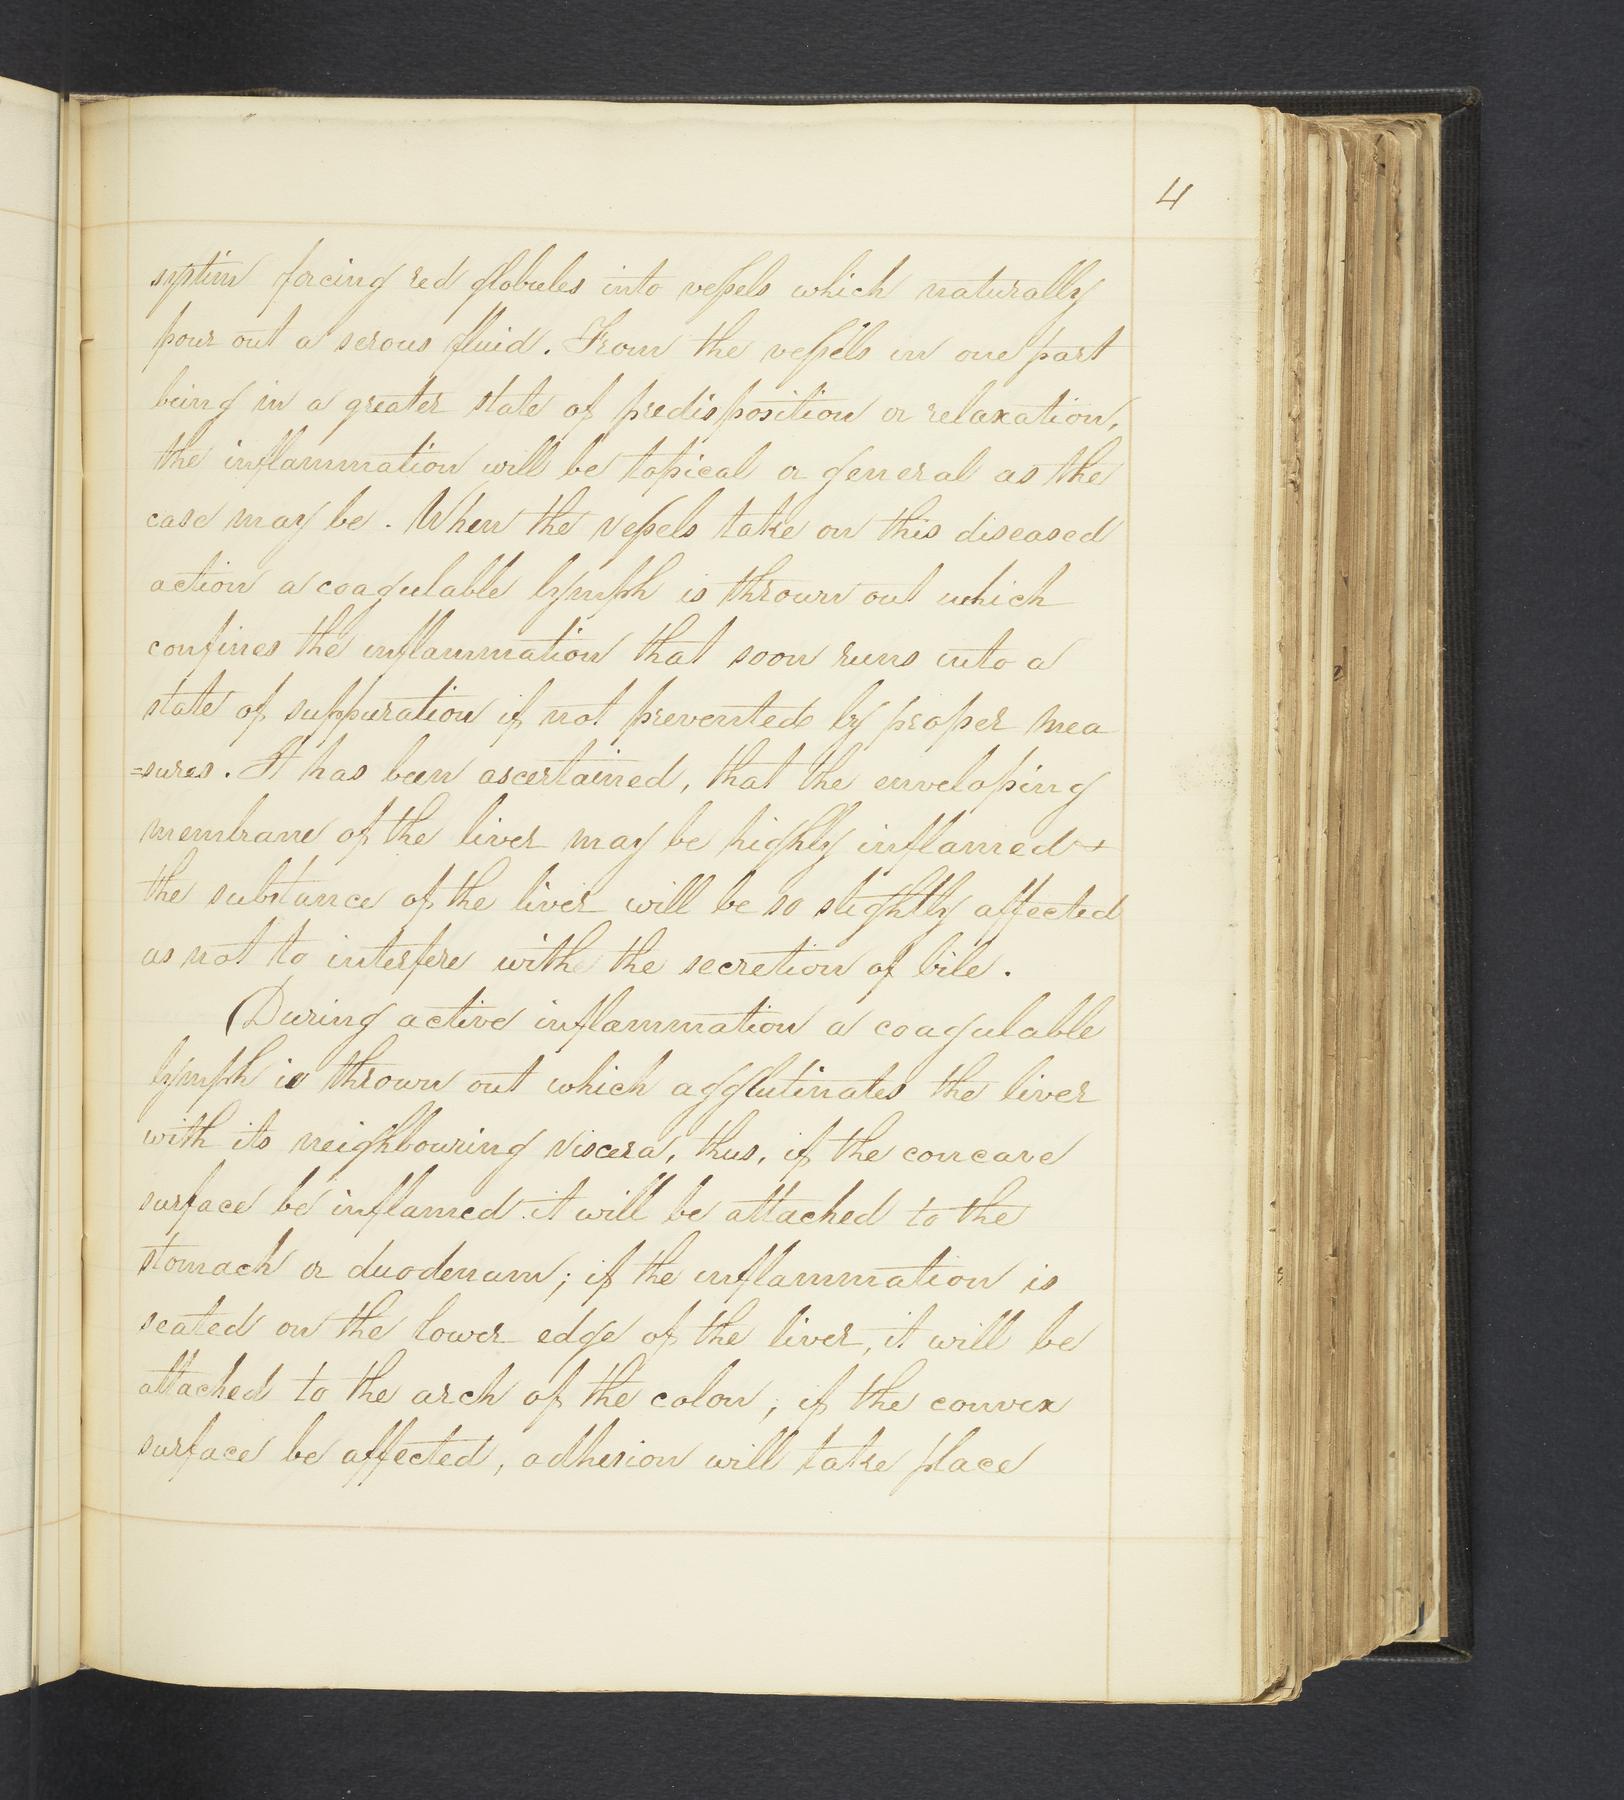 4
system forcing red globules into vessels which naturally
pour out a serous fluid. From the vessels in one part
being in a greater state of predisposition or relaxation,
the inflammation will be topical or general as the
case may be. When the vessels take on this diseased
action a coagulable lymph is thrown out which
confines the inflammation that soon runs into a
state of suppuration if not prevented by proper mea
=sures. It has been ascertained, that the enveloping
membrane of the liver may be highly inflamed +
the substance of the liver will be so slightly affected
as not to interfere with the secretion of bile.
During active inflammation a coagulable
lymph is thrown out which agglutinates the liver
with its neighbouring viscera, thus, if the concave
surface be inflamed it will be attached to the
stomach or duodenum; if the inflammation is
seated on the lower edge of the liver, it will be
attached to the arch of the colon; if the convex
surface be affected, adhesion will take place